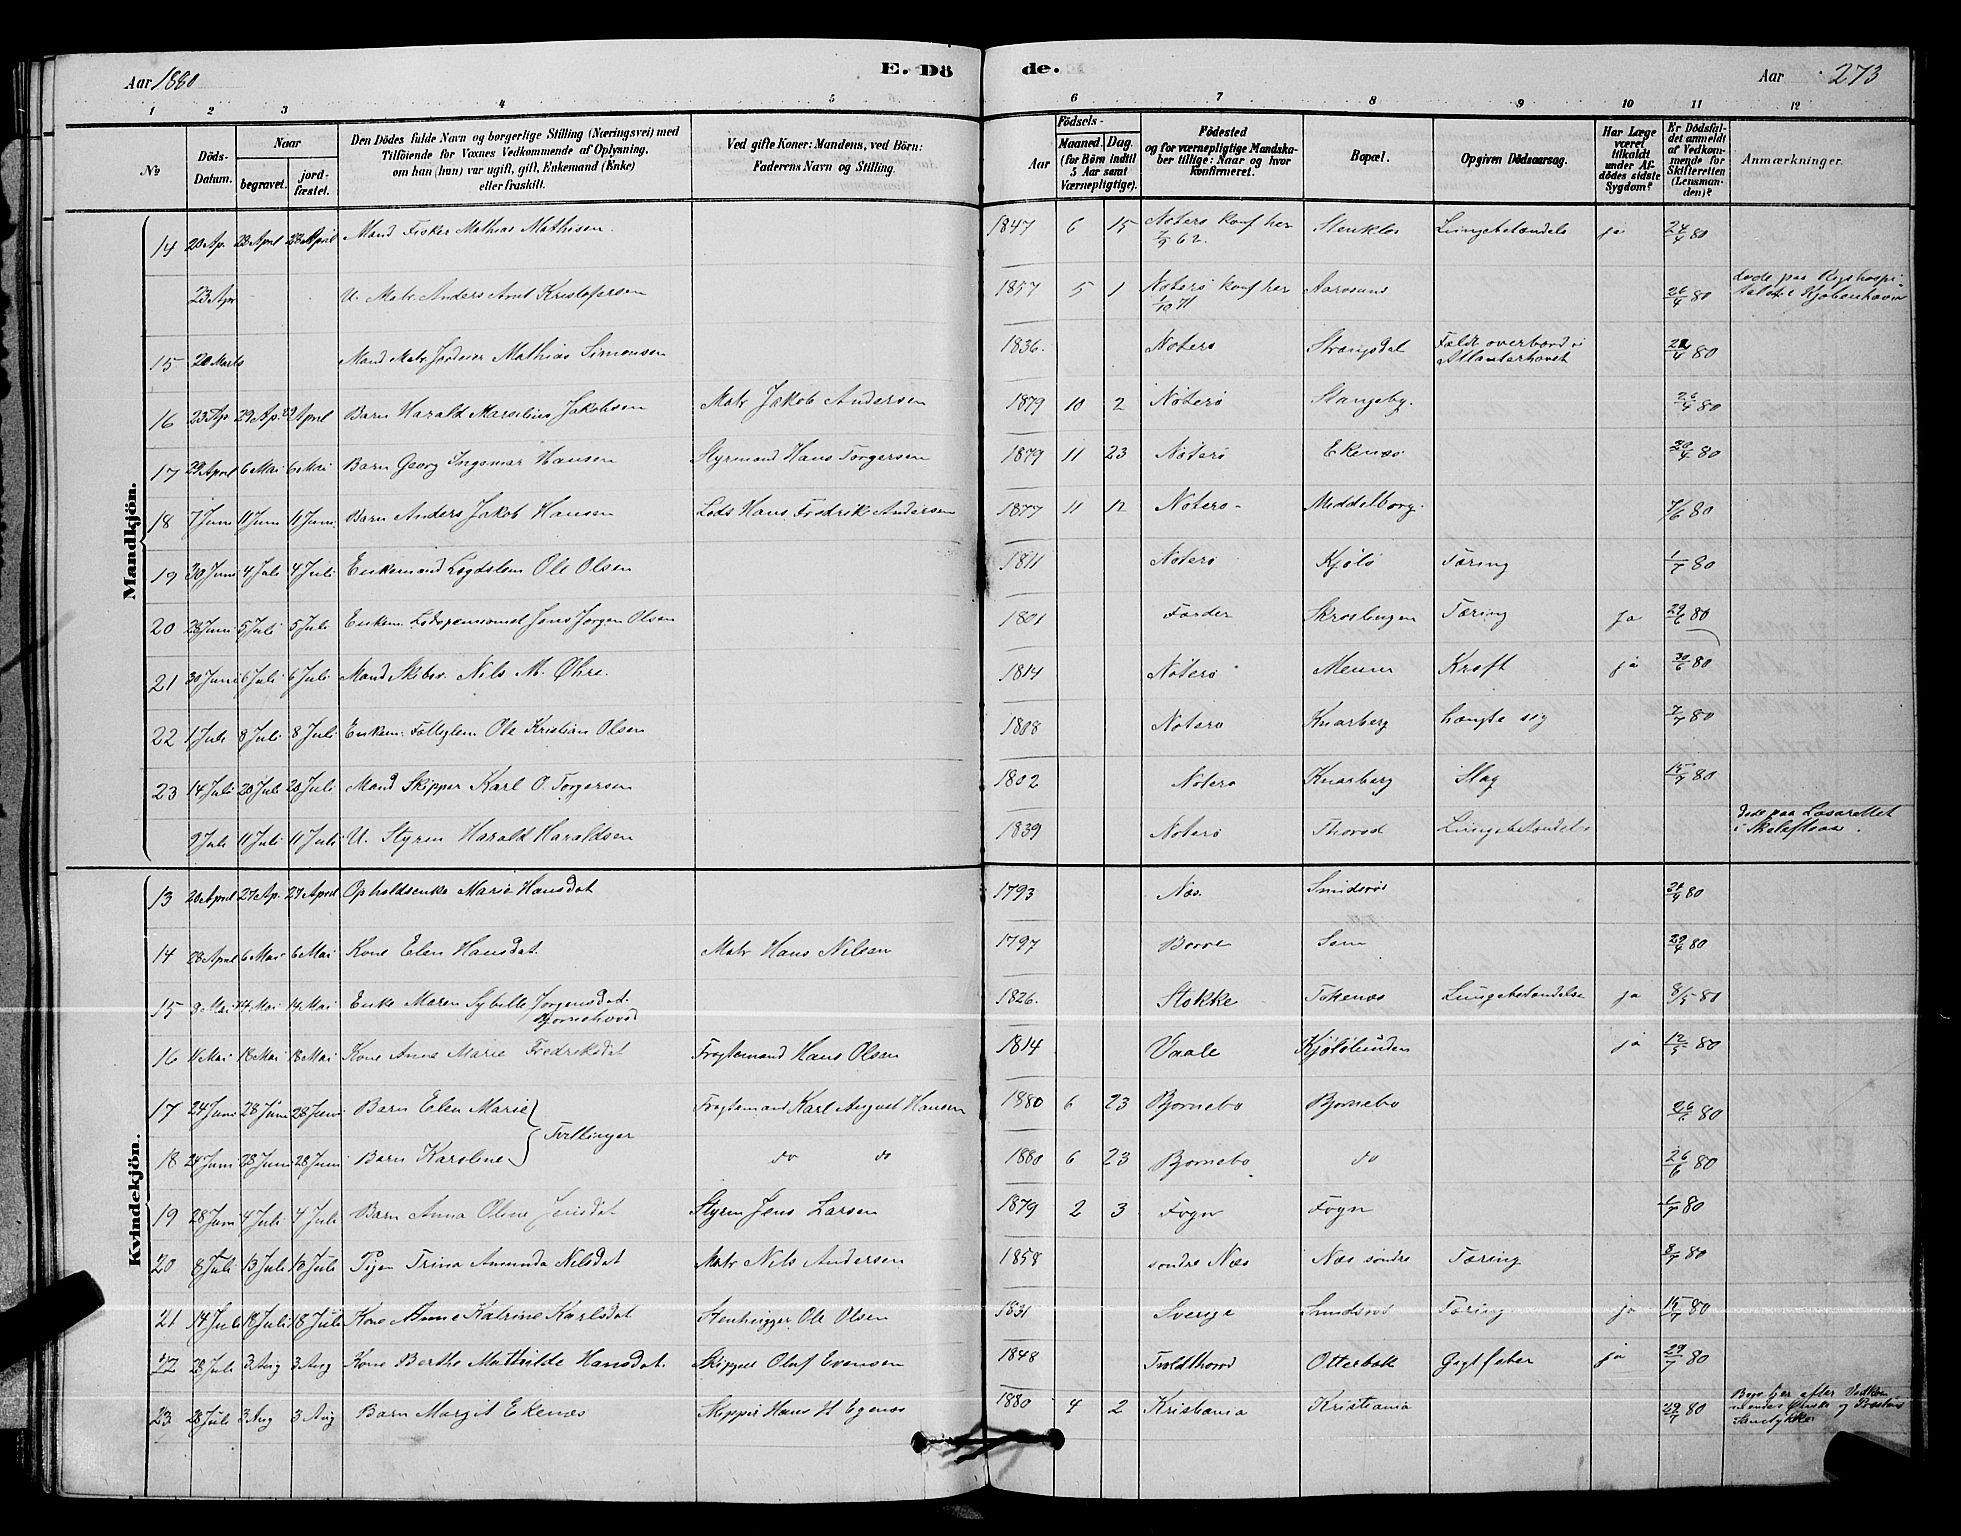 Aar 1880
E. Dö
de.
Aar 273
1 2 3 4 5 6 7 8 9 10 11 12
No
Döds-Datum.
Naar
begravet.
jord-fæstet.
Den Dödes fulde Navn og borgerlige Stilling (Næringsvei) med
Tilföiende for Voxnes Vedkommende af Oplysning,
om han (hun) var ugift, gift, Enkemand (Enke)
eller fraskilt.
Ved gifte Koner: Mandens, ved Börn:
Faderens Navn og Stilling.
Födsels-
Aar
Maaned. Dag.
(for Börn indtil
5 Aar samt
Værnepligtige).
Födested
og for værnepligtige Mandska-
ber tillige: Naar og hvor
konfirmeret.
Bopæl.
Opgiven Dödsaarsag.
Har Læge
været
tilkaldt
under Af-
dödes sidste
Sygdom?
Er Dödsfal-
det anmeldt
af Vedkom-
mende for
Skifteretten
(Lensman-
den)?
Anmærkninger.
Mandkjön.
14 20 Ap. 28 April 28 April Mand Fisker Mathias Mathisen. 1847 6 15 Nøterø konf her 62. Stenkløs Lungebetændelse ja 24/4 80
23 Apr U. Matr. Anders Arnt Kristofersen 1857 5 1 Nøterø konf her 1/10 71 Aarøsund 26/4 80 døde paa Rigshospitalet i Kjøbenhavn
15 20 Marts Mand Matr. Jordeier Mathias Simonsen 1836. Nøterø Strængsdal Faldt overbord i Atlanterhavet 80
16 23 Ap 29 Ap. 29 April Barn Harald Marselius Jakobsen Matr Jakob Andersen 1879 10 2 Nøterø Stangeby. 26/4 80
17 29 April 6 Mai 6 Mai Barn Georg Ingomar Hansen Styrmand Hans Torgersen 1879 11 23 Nøterø Ekenæs 30/4 80
18 7 Juni 11 Juni 11 Juni Barn Anders Jakob Hansen Lods Hans Fredrik Andersen 1877 11 12 Nøterø Middelborg. 7/6 80
19 30 Juni 4 Juli 4 Juli Enkemand Lægdslem Ole Olsen 1811 Nøterø Kjølø Tæring 1/7 80
20 28 Juni 5 Juli 5 Juli Enkem. Lodspensionist Jens Jørgen Olsen 1801 Færder Skrosbugen Tæring Ja 29/6 80
21 30 Juni 6 Juli 6 Juli Mand Skibsr. Nils M. Øhre. 1814 Nøterø Meum Kræft ja 30/6 80
22 1 Juli 8 Juli 8 Juli Enkem. Fattiglem Ole Kristian Olsen 1808 Nøterø Knarberg hængte sig 7/7 80
23 14 Juli 20 Juli 20 Juli Mand Skipper Karl O. Torgersen 1802 Nøterø Knarberg Slag 15/7 80
9 Juli 11 Juli 11 Juli U. Styrm Harald Haraldsen 1839 Nøterø Thorød Lungebetændelse døde paa Lasarettet i Skelefteaa.
Kvindekjön.
13 20 April 27 Ap. 27 April Opholdsenke Marie Hansdat 1793 Næs. Smidsrød 80
14 28 April 6 Mai 6 Mai Kone Elen Hansdat. Matr Hans Nilsen 1797 Borre Sem 29/4 80
15 8 Mai 14 Mai 14 Mai Enke Maren Sybille Jørgensdat. Bjørnehoved 1826. Stokke Tokenæs Lungebetændelse ja 8/5 80
16 11 Mai 18 Mai 18 Mai Kone Anne Marie Fredriksdat Fragtemand Hans Olsen 1814 Vaale Kjølølunden ja 12/5 80
17 24 Juni 28 Juni 28 Juni Barn Elen Marie Fragtemand Karl August Hansen 1880 6 23 Bjørnebo Bjørnebo 26/6 80
Tvillinger
18 24 Juni 28 Juni 28 Juni Barn Karoline do do 1880 6 23 Bjørnebo do 26/6 80
19 28 Juni 4 Juli 4 Juli Barn Anna Oline Jensdat Styrm Jens Larsen 1879 2 3 Føyn Føyn 1/7 80
20 8 Juli 13 Juli 13 Juli Pige Trina Amunda Nilsdat Matr Nils Andersen 1858 søndre Næs Næs søndre Tæring 8/7 80
21 14 Juli 18 Juli 18 Juli Kone Anne Katrine Karlsdat Stenhugger Ole Olsen 1831 Sverige Smidsrød Tæring ja 15/7 80
22 28 Juli 3 Aug 3 Aug Kone Berthe Mathilde Hansdat. Skipper Olaf Evensen 1848 Tvoldthorød Otterbæk Gigtfeber ja 29/7 80
23 28 Juli 3 Aug 3 Aug Barn Margit Ekenæs Skipper Hans H Egenæs 1880 4 2 Kristiania Kristiania 29/7 80 efter Vedkommendes Ønske og Præstens Samtykke